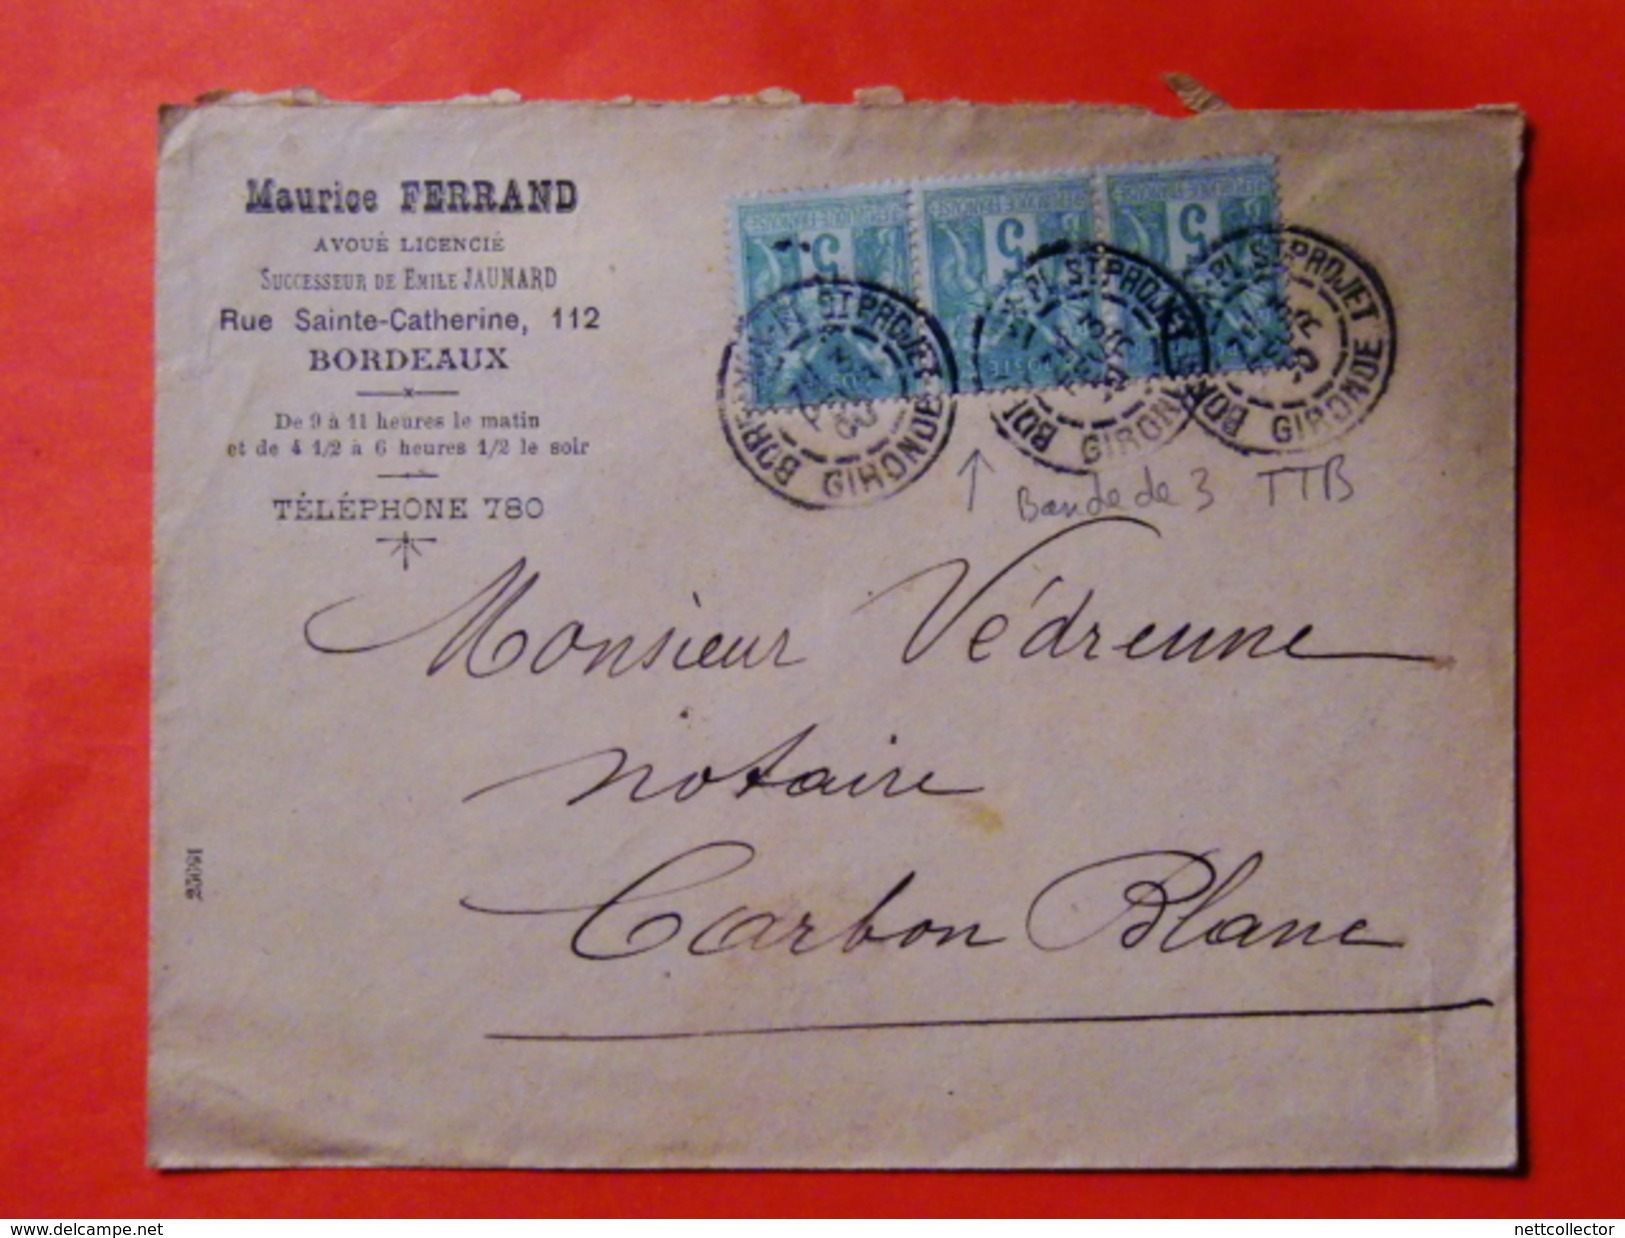 Maurice FERRAND
AVOUÉ LICENCIÉ
SUCCESSEUR DE EMILE JAUMARD
Rue Sainte-Catherine, 112
BORDEAUX
De 9 à 11 heures le matin
et de 4 1/2 à 6 heures 1/2 le soir
TÉLÉPHONE 780
5 5 5
REPUBLIQUE FRANÇAISE
PL. ST. PROJET
GIRONDE
PL. ST. PROJET
GIRONDE
PL. ST. PROJET
GIRONDE
Bande de 3 TTB
Monsieur Védrenne
notaire
Carbon Blanc
delcampe.net
nettcollector